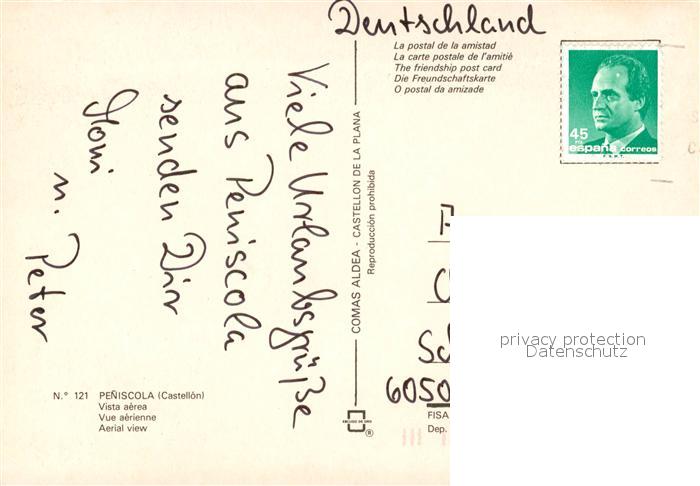 Deutschland
La postal de la amistad
La carte postale de l'amitié
The friendship post card
Die Freundschaftskarte
O postal da amizade
45
PTA
españa correos
F.N.M.T.
Viele Urlaubsgrüße
aus Peniscola
senden Dir
Moni
u. Peter
COMAS ALDEA - CASTELLON DE LA PLANA
Reproducción prohibida
Sc
6050
N.° 121 PEÑISCOLA (Castellón)
Vista aérea
Vue aérienne
Aerial view
ESCUDO DE ORO
®
FISA
Dep.
privacy protection
Datenschutz